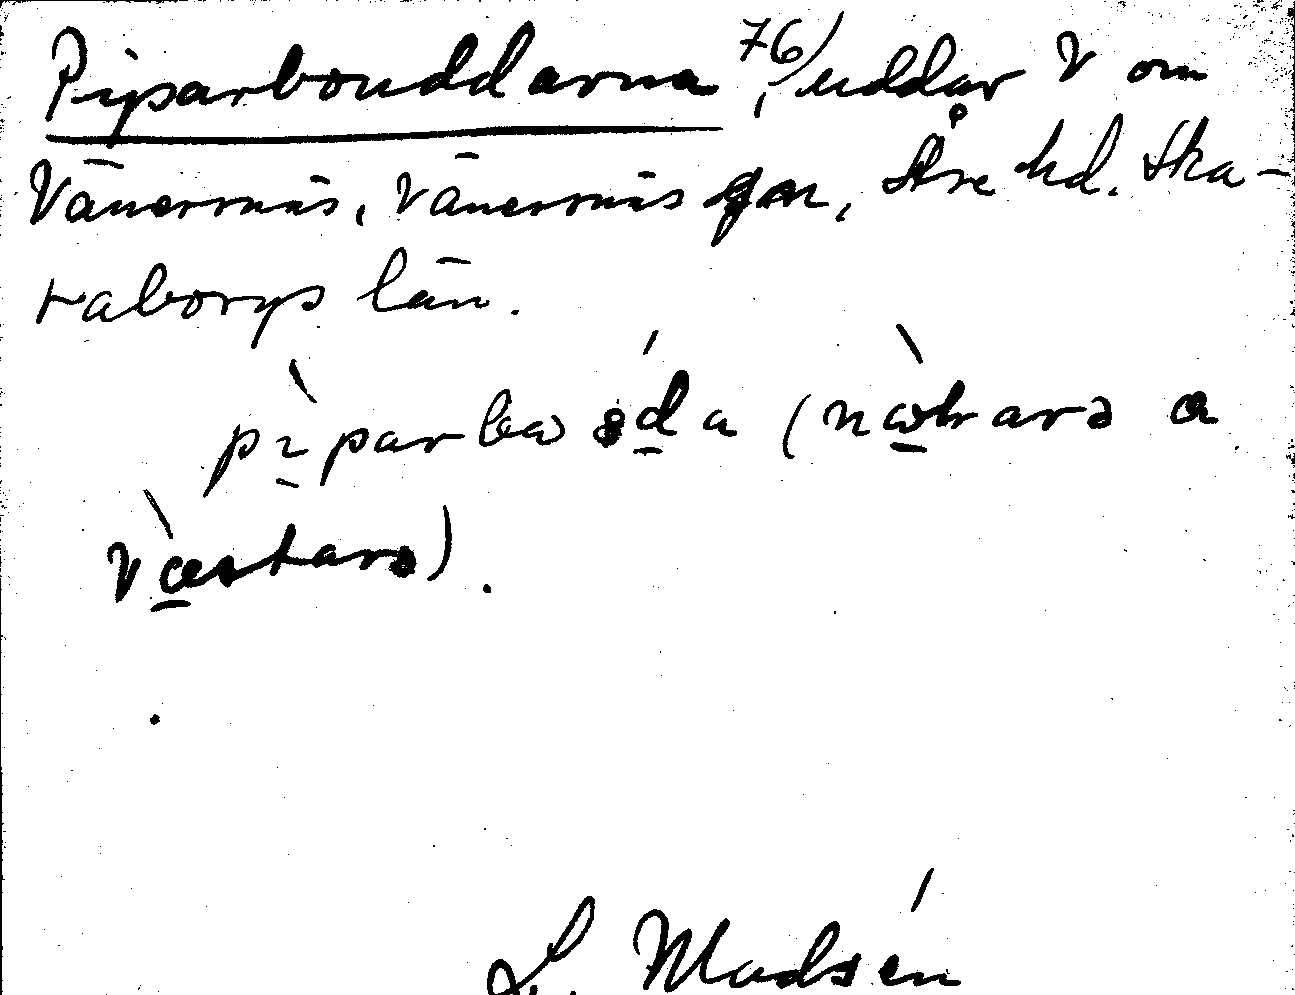 Piparbouddarna 76/, uddar V om
Vänersnäs, Vänersnäs sn, Åse hd. Ska-
raborgs län.
pìparbω a (nωkarə a
væstarə).
L. Madsén